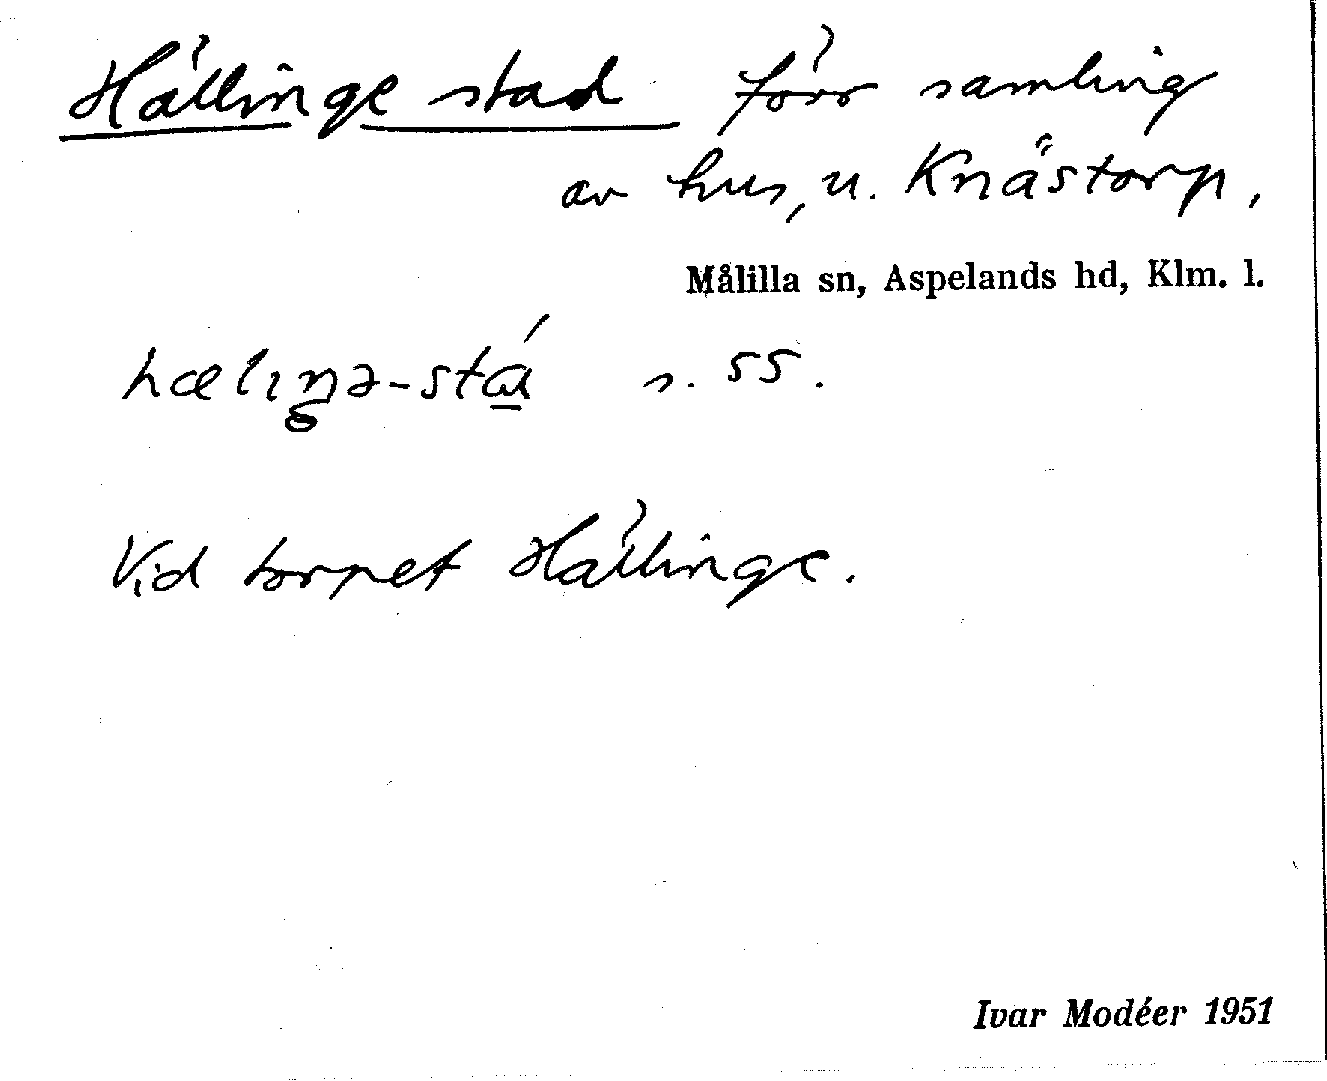 Hällinge stad förr samling
av hus, u. Knästorp,
Målilla sn, Aspelands hd, Klm. l.
hælıŋə-stá s. 55.
Vid torpet Hällinge.
Ivar Modéer 1951